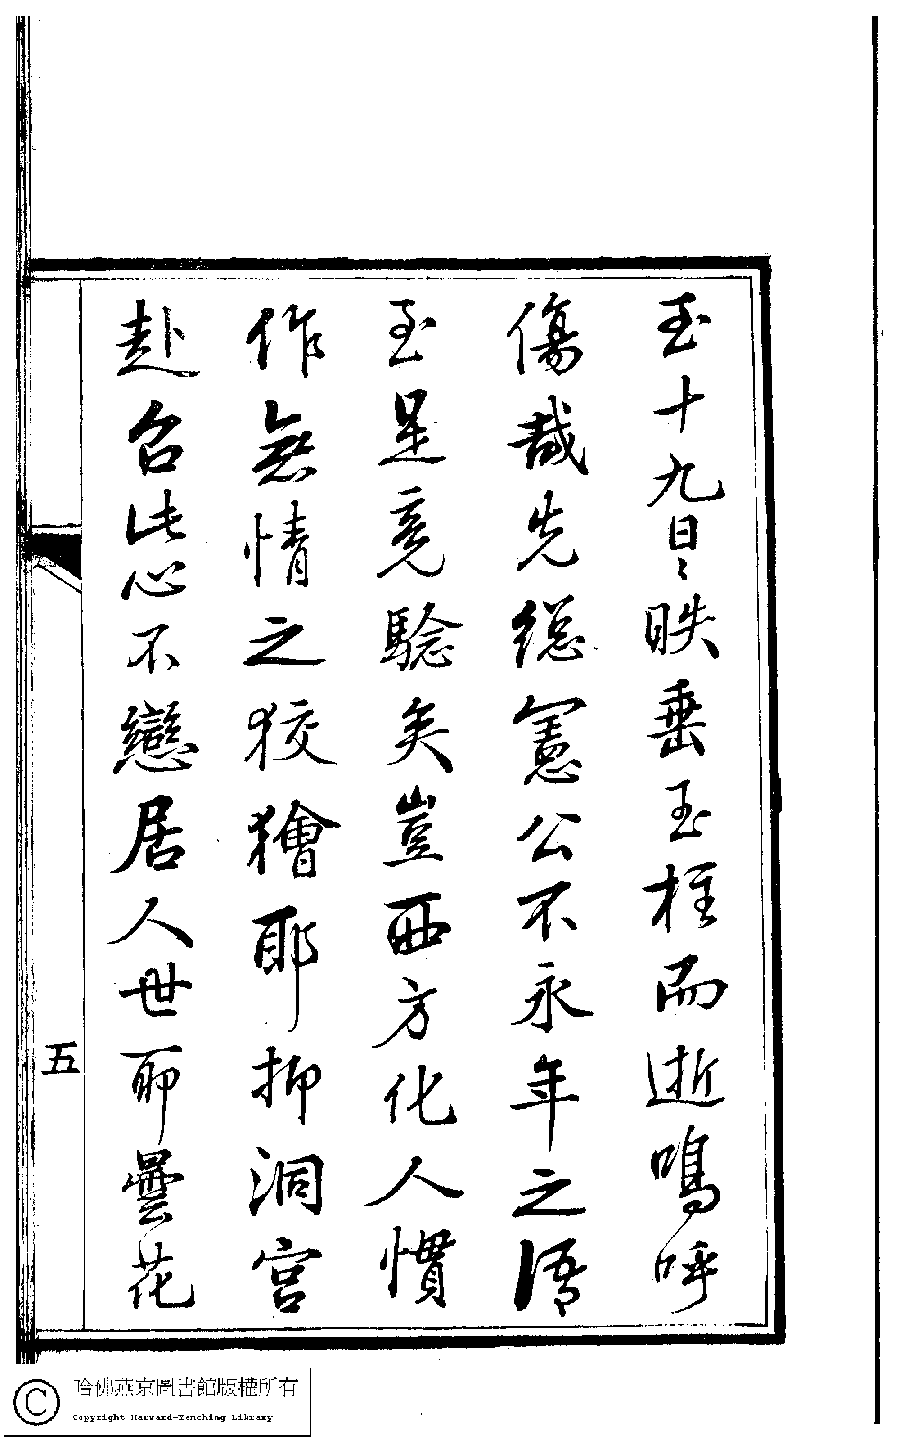 至十九日〻昳垂玉柱而逝嗚呼
傷哉先總憲公不永年之語
至是竟驗矣豈西方化人慣
作無情之狡獪耶抑洞宮
赴召此心不戀居人世耶曇花
五
哈佛燕京圖書館版權所有
Copyright Harvard-Yenching Library